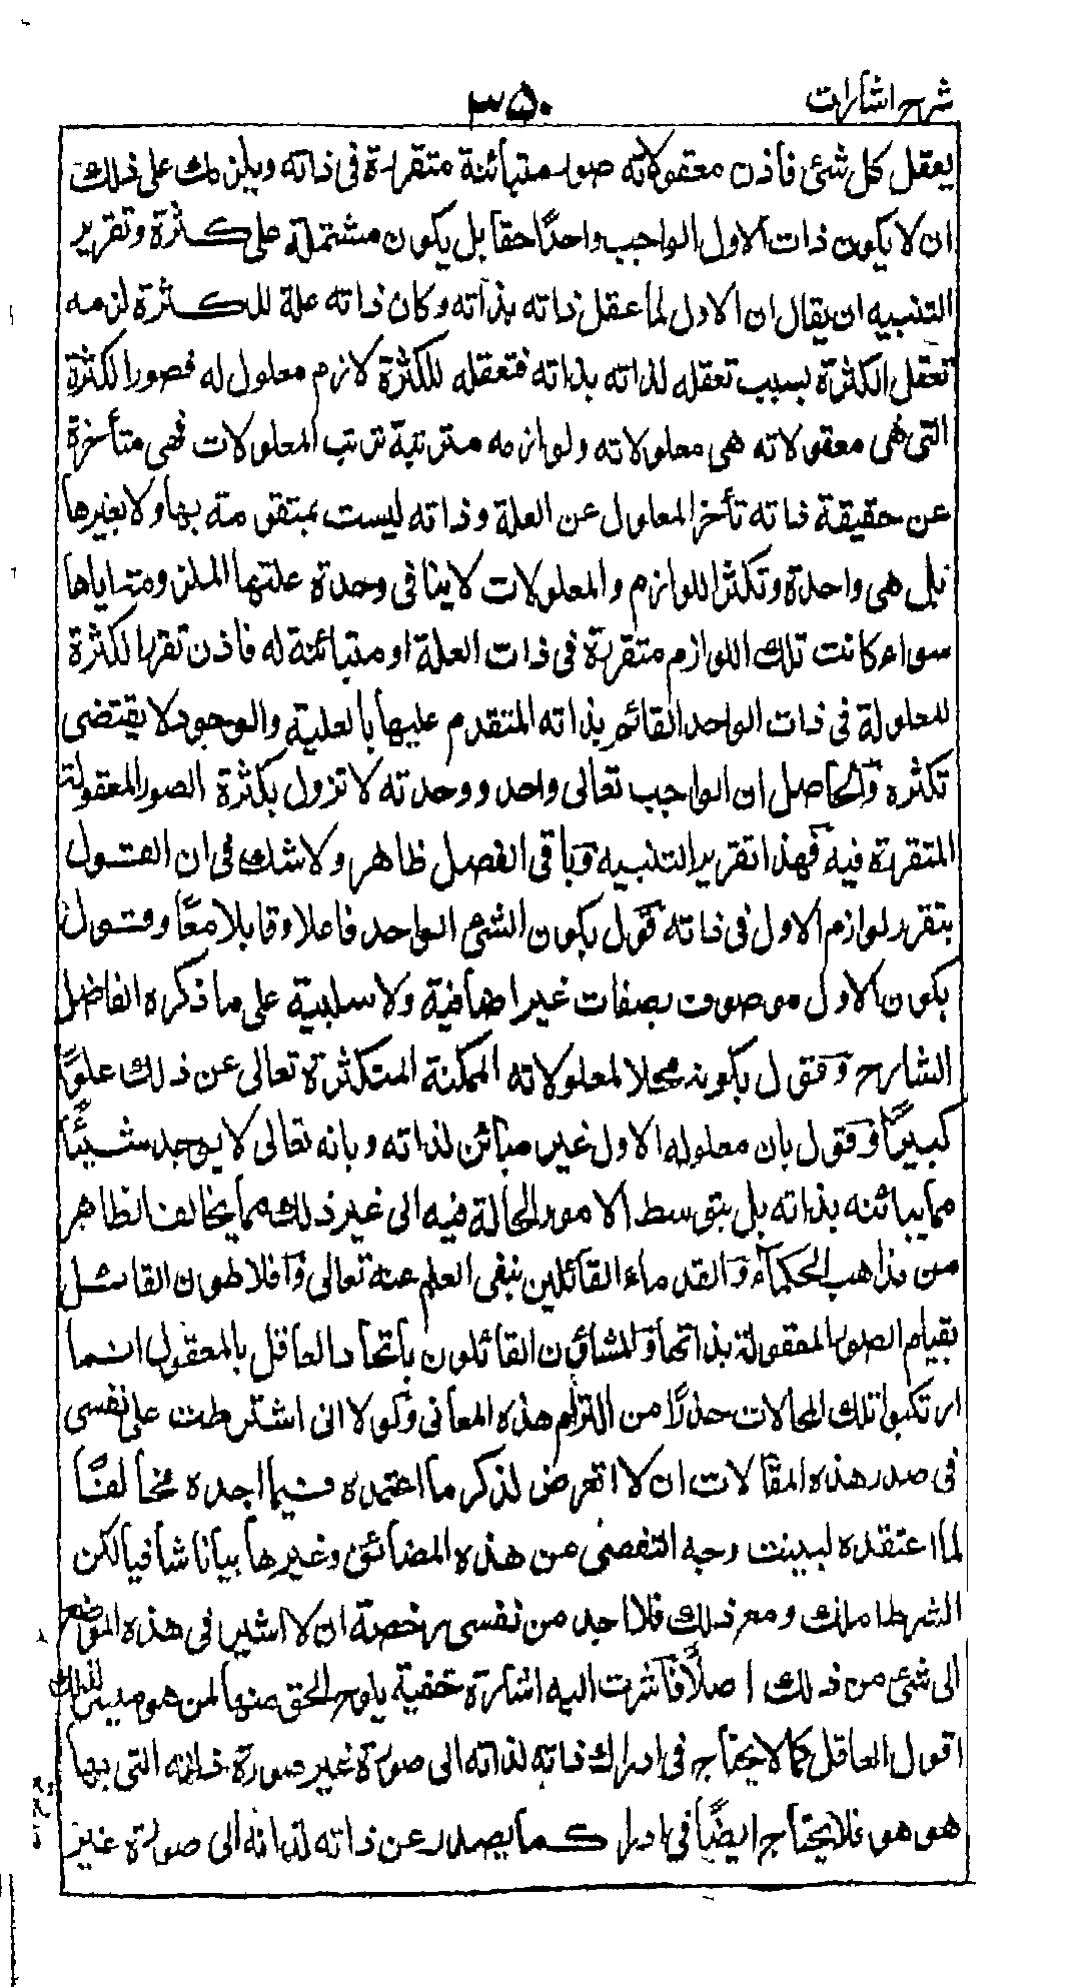 شرح اشارات
٣٥٠
يعقل كل شئ فاذن معقولاته صور متبائنة متقررة فى ذاته ويلزمك على ذلك
ان لا يكون ذات الاول الواجب واحدًا حقا بل يكون مشتملة على كثرة وتقرير
التنبيه ان يقال ان الاول لما عقل ذاته بذاته وكان ذاته علة للكثرة لزمه
تعقل الكثرة بسبب تعقله لذاته بذاته فتعقله للكثرة لازم معلول له فصور الكثرة
التى هى معقولاته هى معلولاته ولوازمه مترتبة ترتب المعلولات فهى متأخرة
عن حقيقة ذاته تأخر المعلول عن العلة وذاته ليست بمتقومته بها ولا بغيرها
بل هى واحدة وتكثر اللوازم والمعلولات لا ينافى وحدة علتها الملزومة اياها
سواء كانت تلك اللوازم متقررة فى ذات العلة او متبائنة له فاذن تقرر الكثرة
المعلولة فى ذات الواحد القائم بذاته المتقدم عليها بالعلية والوجود لا يقتضى
تكثره والحاصل ان الواجب تعالى واحد ووحدته لا تزول بكثرة الصور المعقولة
المتقررة فيه فهذا تقرير التنبيه وباقى الفصل ظاهر ولا شك فى ان القول
بتقرر لوازم الاول فى ذاته قول بكون الشئ الواحد فاعلا وقابلا معًا وقول
بكون الاول موصوف بصفات غير اضافية ولا سلبية على ما ذكره الفاضل
الشارح وقول بكونه محلا لمعلولاته الممكنة المتكثرة تعالى عن ذلك علوًّا
كبيرًا وقول بان معلوله الاول غير مبائن لذاته وبانه تعالى لا يوجد شيئًا
مما يبائنه بذاته بل بتوسط الامور الحالة فيه الى غير ذلك مما يخالف الظاهر
من مذاهب الحكماء والقدماء القائلين بنفى العلم عنه تعالى وافلاطون القائل
بقيام الصور المعقولة بذاتها والمشاؤن القائلون باتحاد العاقل بالمعقول انما
ارتكبوا تلك المحالات حذرًا من التزام هذه المعانى ولولا انى اشترطت على نفسى
فى صدر هذه المقالات ان لا اتعرض لذكر ما اعتمده فيما اجده مخالفًا
لما اعتقده لبينت وجه التفصى من هذه المضائق وغيرها بيانا شافيا لكن
الشرط املك ومع ذلك فلا اجد من نفسى رخصة ان لا اشير فى هذه المواضع
الى شئ من ذلك اصلًا فاشرت اليه اشارة خفية يلوح الحق منها لمن هو ميسر لذلك
اقول العاقل كما لا يحتاج فى ادراك ذاته لذاته الى صورة غير صورة ذاته التى بها
هو هو فلا يحتاج ايضًا فى ادراك ما يصدر عن ذاته لذاته الى صورة غير